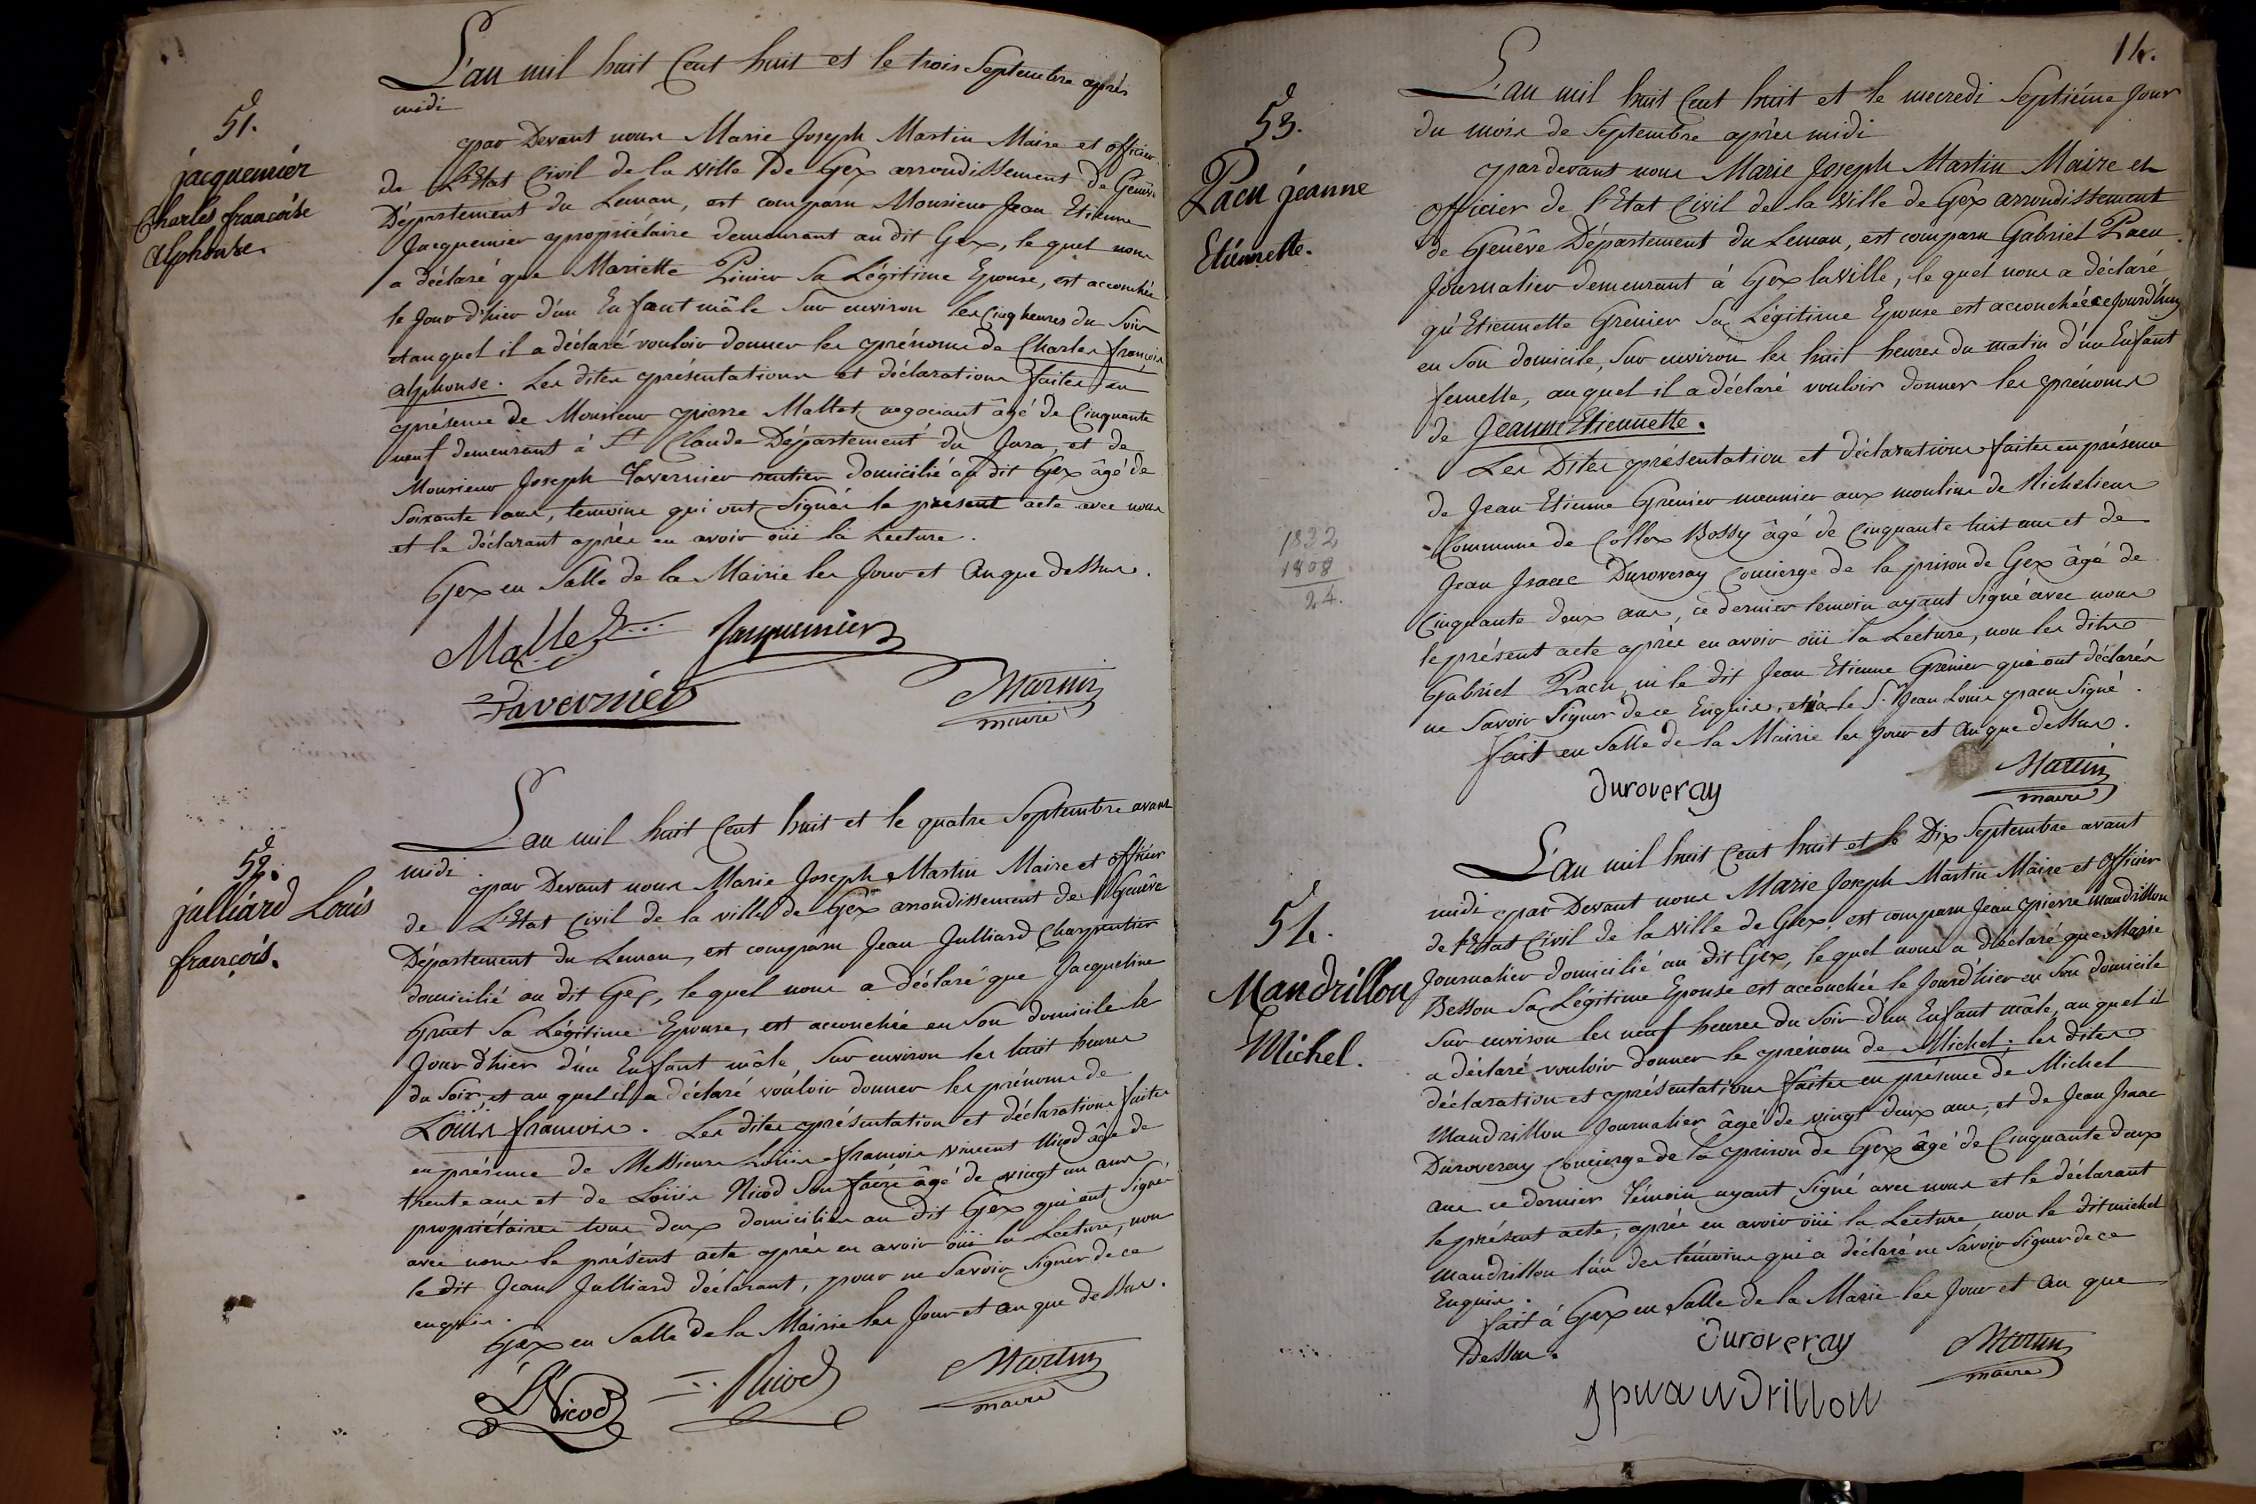 L'an mil huit Cent huit et le trois Septembre après
midi
51.
jacquemier
Charles françoise
Alphonse.
par Devant nous Marie Joseph Martin Maire et officier
de L'Etat Civil de la ville De Gex arrondissement de Genêve
Département du Leman, est comparu Monsieur Jean Etienne
Jacquemier propriétaire demeurant au dit Gex, le quel nous
a déclaré que Mariette sa Légitime Epouse, est accouchée
le Jour d'hier d'un Enfant mâle Sur environ les Cinq heures du Soir
et auquel il a déclaré vouloir donner les prénoms de Charles françois
alphonse. Les dites présentations et déclarations faites en
présence de Monsieur pierre Mallet negociant âgé de Cinquante
neuf demeurant à St Claude Département du Jura, et de
Monsieur Joseph Tavernier rentier domicilié au dit Gex âgé de
Soixante ans, temoins qui ont Signés le présent acte avec nous
et le déclarant après en avoir oüi la Lecture.
Gex en Salle de la Mairie les Jour et An que dessus.
Mallet Jacquemier
Tavernier Martin
maire
L'an mil huit Cent huit et le quatre Septembre avant
midi.
52.
julliard Louis
françois.
par Devant nous Marie Joseph Martin Maire et officier
de L'Etat Civil de la ville de Gex arrondissement de Genêve
Département du Leman, est comparu Jean Julliard Charpentier
domicilié au dit Gex, le quel nous a déclaré que Jacqueline
Gruet sa Légitime Epouse, est accouchée en Son domicile le
Jour d'hier d'un Enfant mâle Sur environ les huit heures
du Soir et au quel il a déclaré vouloir donner les prénoms de
Loüis françois. Les dites présentation et déclarations faites
en présence de Messieurs Loüis françois vincent Nicod âgé de
trente ans et de Loüis Nicod Son frère âgé de vingt un ans
propriétaires tous deux domiciliés au dit Gex qui ont Signé
avec nous le présent acte après en avoir oüi la Lecture, non
le dit Jean Julliard déclarant, pour ne Savoir Signer de ce
enquis.
Gex en Salle de la Mairie les Jour et an que dessus.
Nicod Nicod Martin
maire
14.
L'an mil huit Cent huit et le mecredi Septième Jour
du mois de Septembre après midi
53.
Pacu jeanne
Etiennette.
par devant nous Marie Joseph Martin Maire et
officier de l'Etat Civil de la Ville de Gex arrondissement
de Genêve Département du Leman, est comparu Gabriel Pacu
Journalier demeurant à Gex la Ville, le quel nous a déclaré
qu'Etiennette Grenier Sa Légitime Epouse est accouchée cejourd'huy
en Son domicile, Sur environ les huit heures du matin d'un Enfant
femelle, au quel il a déclaré vouloir donner les prénoms
de Jeanne Etiennette.
Les Dites présentation et déclarations faites en présence
de Jean Etienne Grenier meunier aux moulins de Richelieu
Commune de Collex Bossy âgé de Cinquante huit ans et de
Jean Isaac Duroveray Concierge de la prison de Gex âgé de
Cinquante deux ans, ce dernier temoin ayant Signé avec nous
le présent acte après en avoir oüi la Lecture, non les dits
Gabriel Pacu ni le dit Jean Etienne Grenier qui ont déclarés
ne Savoir Signer de ce Enquis, et a le S. Jean Louis pacu Signé.
fait en Salle de la Mairie les Jour et An que dessus.
1832
1808
24.
duroveray Martin
maire
L'an mil huit Cent huit et le Dix Septembre avant
midi par Devant nous Marie Joseph Martin Maire et officier
54.
Mandrillon
Michel.
de l'Etat Civil de la Ville de Gex, est comparu Jean pierre Mandrillon
Journalier domicilié au dit Gex, le quel nous a déclaré que Marie
Besson Sa Légitime Epouse est accouchée le Jourd'hier en Son domicile
Sur environ les neuf heures du Soir d'un Enfant mâle, au quel il
a déclaré vouloir donner le prénom de Michel; les dites
déclaration et présentations faites en présence de Michel
Mandrillon Journalier âgé de vingt deux ans, et de Jean Isaac
Duroveray Concierge de la prison de Gex âgé de Cinquante deux
ans ce dernier Témoin ayant Signé avec nous et le déclarant
le présent acte, après en avoir oüi la Lecture, non le dit michel
mandrillon l'un des témoins qui a déclaré ne Savoir Signer de ce
Enquis.
fait à Gex en Salle de la Mairie les Jour et An que
Dessus.
duroveray Martin
maire
jpmandrillon